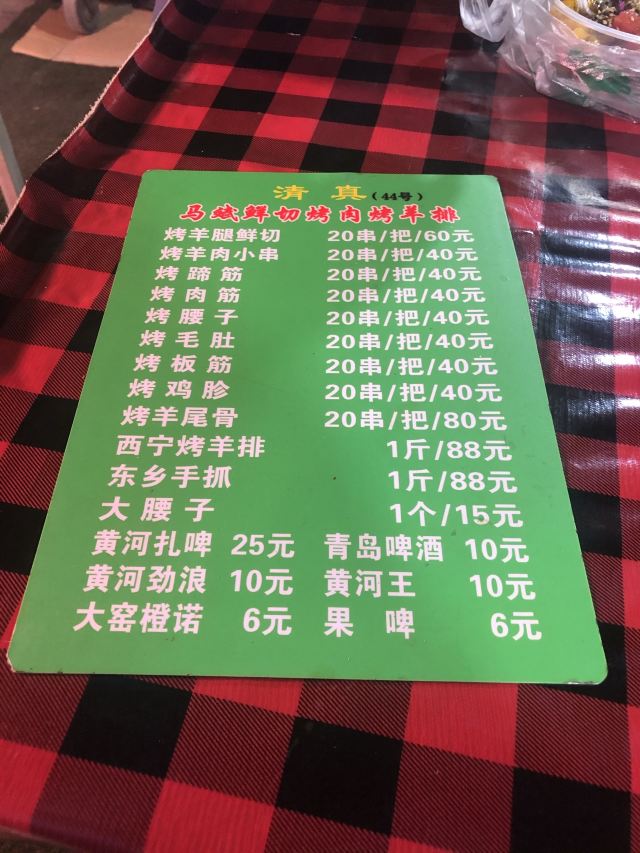 清真(44号)
马斌鲜切烤肉烤羊排
烤羊腿鲜切 20串/把/60元
烤羊肉小串 20串/把/40元
烤蹄筋 20串/把/40元
烤肉筋 20串/把/40元
烤腰子 20串/把/40元
烤毛肚 20串/把/40元
烤板筋 20串/把/40元
烤鸡胗 20串/把/40元
烤羊尾骨 20串/把/80元
西宁烤羊排 1斤/88元
东乡手抓 1斤/88元
大腰子 1个/15元
黄河扎啤 25元 青岛啤酒 10元
黄河劲浪 10元 黄河王 10元
大窑橙诺 6元 果啤 6元